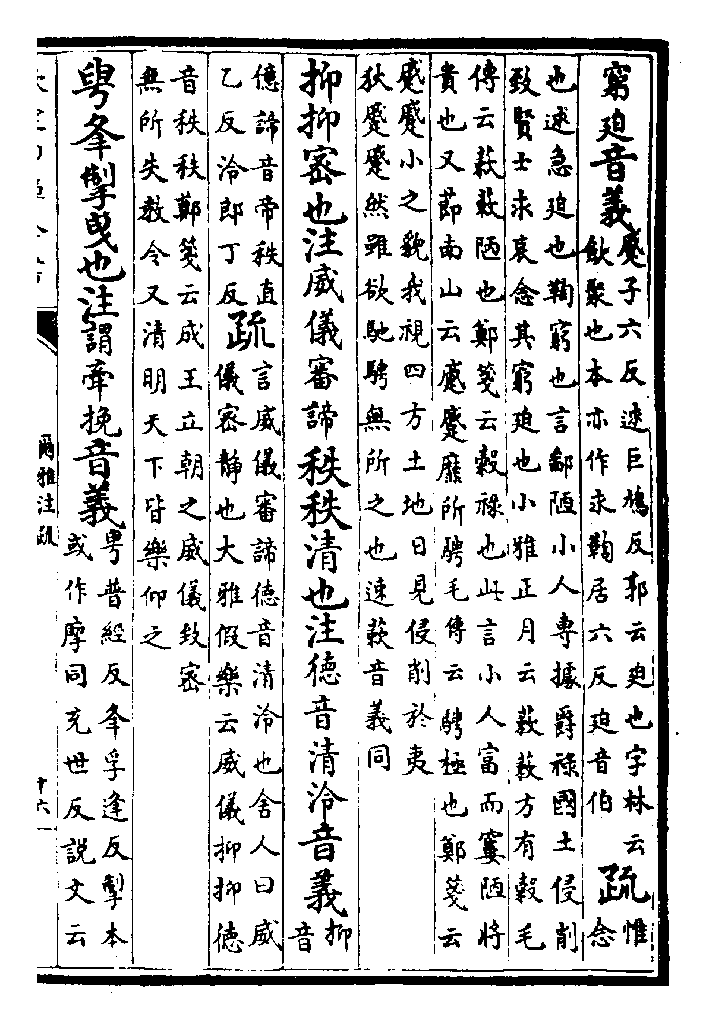 窮廹音義蹙子六反逑巨鳩反郭云廹也字林云
歛聚也本亦作求鞫居六反廹音伯
疏惟
念
也逑急廹也鞫窮也言鄙陋小人專據爵祿國土侵削
致賢士永哀念其窮廹也小雅正月云蓛蓛方有穀毛
傳云蓛蓛陋也鄭箋云穀祿也此言小人富而窶陋將
貴也又節南山云蹙蹙靡所騁毛傳云騁極也鄭箋云
蹙蹙小之貌我視四方土地日見侵削於夷
狄蹙蹙然雖欲馳騁無所之也速蓛音義同
抑抑密也注威儀審諦秩秩清也注德音清泠音義抑
音
億諦音帝秩直
乙反泠郎丁反
疏言威儀審諦德音清泠也舍人曰威
儀密靜也大雅假樂云威儀抑抑德
音秩秩鄭箋云成王立朝之威儀致密
無所失教令又清明天下皆樂仰之
甹夆掣曳也注謂牽挽音義甹普經反夆孚逢反掣本
或作摩同充世反說文云
爾雅注疏
十六